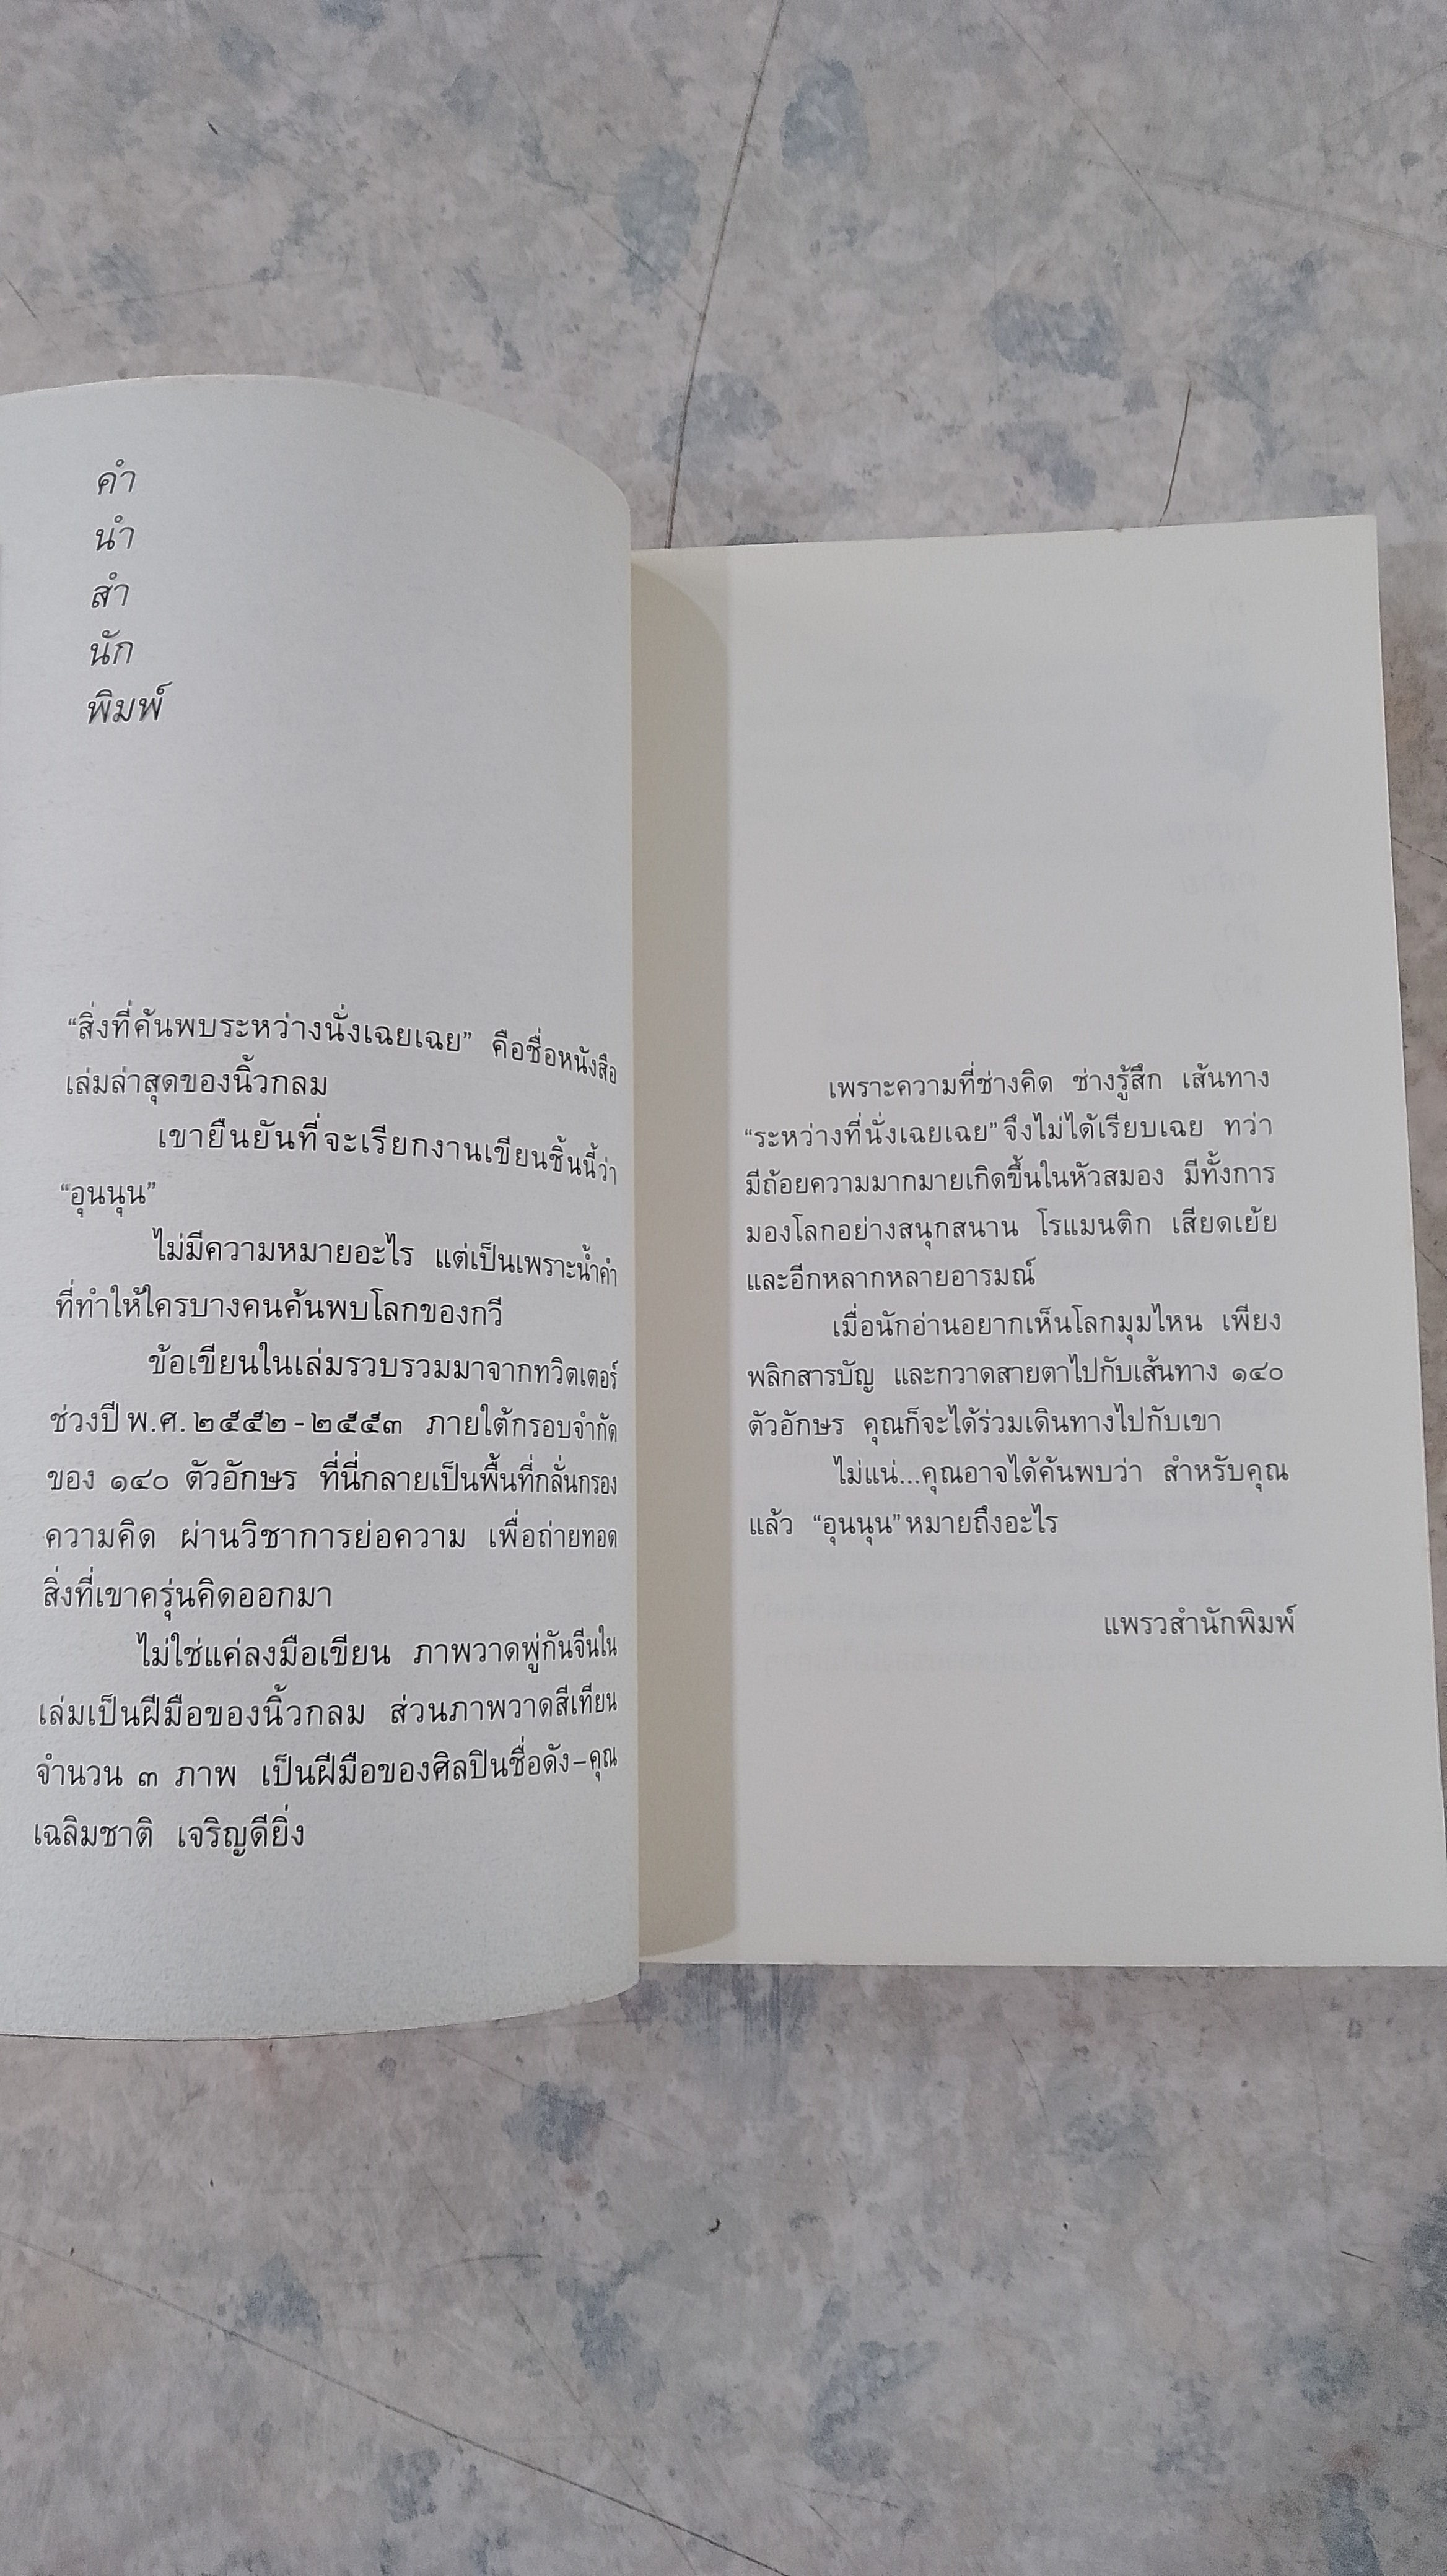 คำ
นำ
สำ
นัก
พิมพ์
“สิ่งที่ค้นพบระหว่างนั่งเฉยเฉย” คือชื่อหนังสือ
เล่มล่าสุดของนิ้วกลม
เขายืนยันที่จะเรียกงานเขียนชิ้นนี้ว่า
“อุนนุน”
ไม่มีความหมายอะไร แต่เป็นเพราะน้ำคำ
ที่ทำให้ใครบางคนค้นพบโลกของกวี
ข้อเขียนในเล่มรวบรวมมาจากทวิตเตอร์
ช่วงปี พ.ศ. ๒๕๕๒ - ๒๕๕๓ ภายใต้กรอบจำกัด
ของ ๑๔๐ ตัวอักษร ที่นี่กลายเป็นพื้นที่กลั่นกรอง
ความคิด ผ่านวิชาการย่อความ เพื่อถ่ายทอด
สิ่งที่เขาครุ่นคิดออกมา
ไม่ใช่แค่ลงมือเขียน ภาพวาดพู่กันจีนใน
เล่มเป็นฝีมือของนิ้วกลม ส่วนภาพวาดสีเทียน
จำนวน ๓ ภาพ เป็นฝีมือของศิลปินชื่อดัง–คุณ
เฉลิมชาติ เจริญดียิ่ง
เพราะความที่ช่างคิด ช่างรู้สึก เส้นทาง
“ระหว่างที่นั่งเฉยเฉย” จึงไม่ได้เรียบเฉย ทว่า
มีถ้อยความมากมายเกิดขึ้นในหัวสมอง มีทั้งการ
มองโลกอย่างสนุกสนาน โรแมนติก เสียดเย้ย
และอีกหลากหลายอารมณ์
เมื่อนักอ่านอยากเห็นโลกมุมไหน เพียง
พลิกสารบัญ และกวาดสายตาไปกับเส้นทาง ๑๔๐
ตัวอักษร คุณก็จะได้ร่วมเดินทางไปกับเขา
ไม่แน่...คุณอาจได้ค้นพบว่า สำหรับคุณ
แล้ว “อุนนุน” หมายถึงอะไร
แพรวสำนักพิมพ์